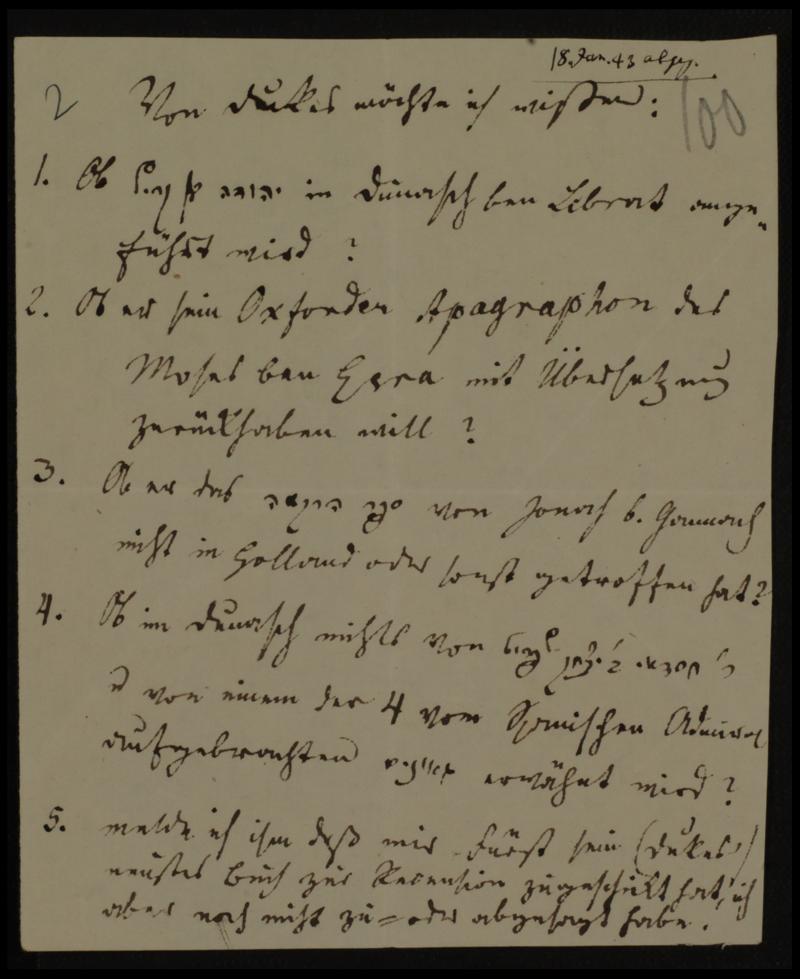 18. Jan. 43 abges.
100
2 Von Dukes möchte ich wissen:
1. Ob יהודה in Dunasch ben Librat ange-
führt wird?
2. Ob er sein Oxforder Apagraphon des
Moses ben Ezra mit Übersetzung
zurückhaben will?
3. Ob er das ספר הרקמה von Jonah b. Gannach
nicht in Holland oder sonst getroffen hat?
4. Ob im Dunasch nichts von
u von einem der 4 vom Spanischen Admiral
aufgebrachten erwähnt wird?
5. melde ich ihm daß mir Fürst sein (Dukes')
neustes Buch zur Recension zugeschickt hat, ich
aber noch nicht zu= oder abgesagt habe.